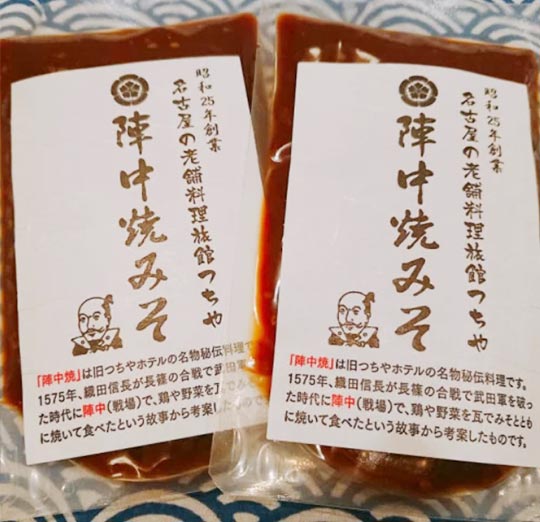 昭和25年創業
名古屋の老舗料理旅館つちや
陣中焼みそ
「陣中焼」は旧つちやホテルの名物秘伝料理で
1575年、織田信長が長篠の合戦で武田軍
た時代に陣中(戦場)で、鶏や野菜を瓦でみ
に焼いて食べたという故事から考案したもの
昭和25年創業
名古屋の老舗料理旅館つちや
陣中焼みそ
「陣中焼」は旧つちやホテルの名物秘伝料理です。
1575年、織田信長が長篠の合戦で武田軍を破っ
た時代に陣中(戦場)で、鶏や野菜を瓦でみそととも
に焼いて食べたという故事から考案したものです。